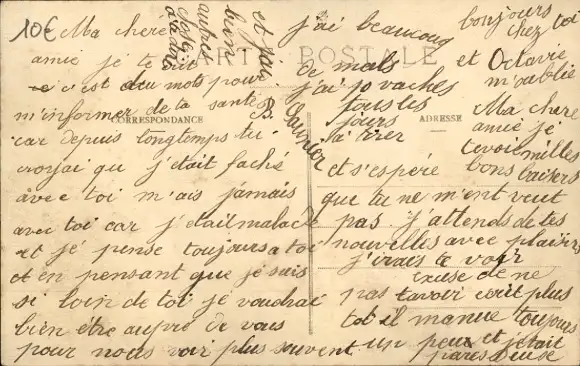 10€
Ma chère
amie je te
c'est deu mots pour
m'informer de ta santée
car depuis longtemps tu
croyai qu j'était faché
avec toi m'ais jamais
avec toi car j'étail malade
et jé pense toujours a toi
et en pensant que je suis
si loin de toi je voudrai
bien être aupré de vous
pour nous voir plus souvent
CARTE POSTALE
CORRESPONDANCE
ADRESSE
j'ai beaucoup
de mals
j'ai 10 vaches
tous les
jours
a tirer
et s'espére
que tu ne m'ent veut
pas j'attends de tes
nouvelles avec plaisirs
j'irais te voir
excuse de ne
pas t'avoir ecrit plus
tot il manque toujours
un peux et j'était
paresseuse
bonjours
chez toi
et Octavie
m'ablie
Ma chere
amie je
t'envoie milles
bons baisers
et j'ai
bien
autre
chose
a te dire
B. Launier